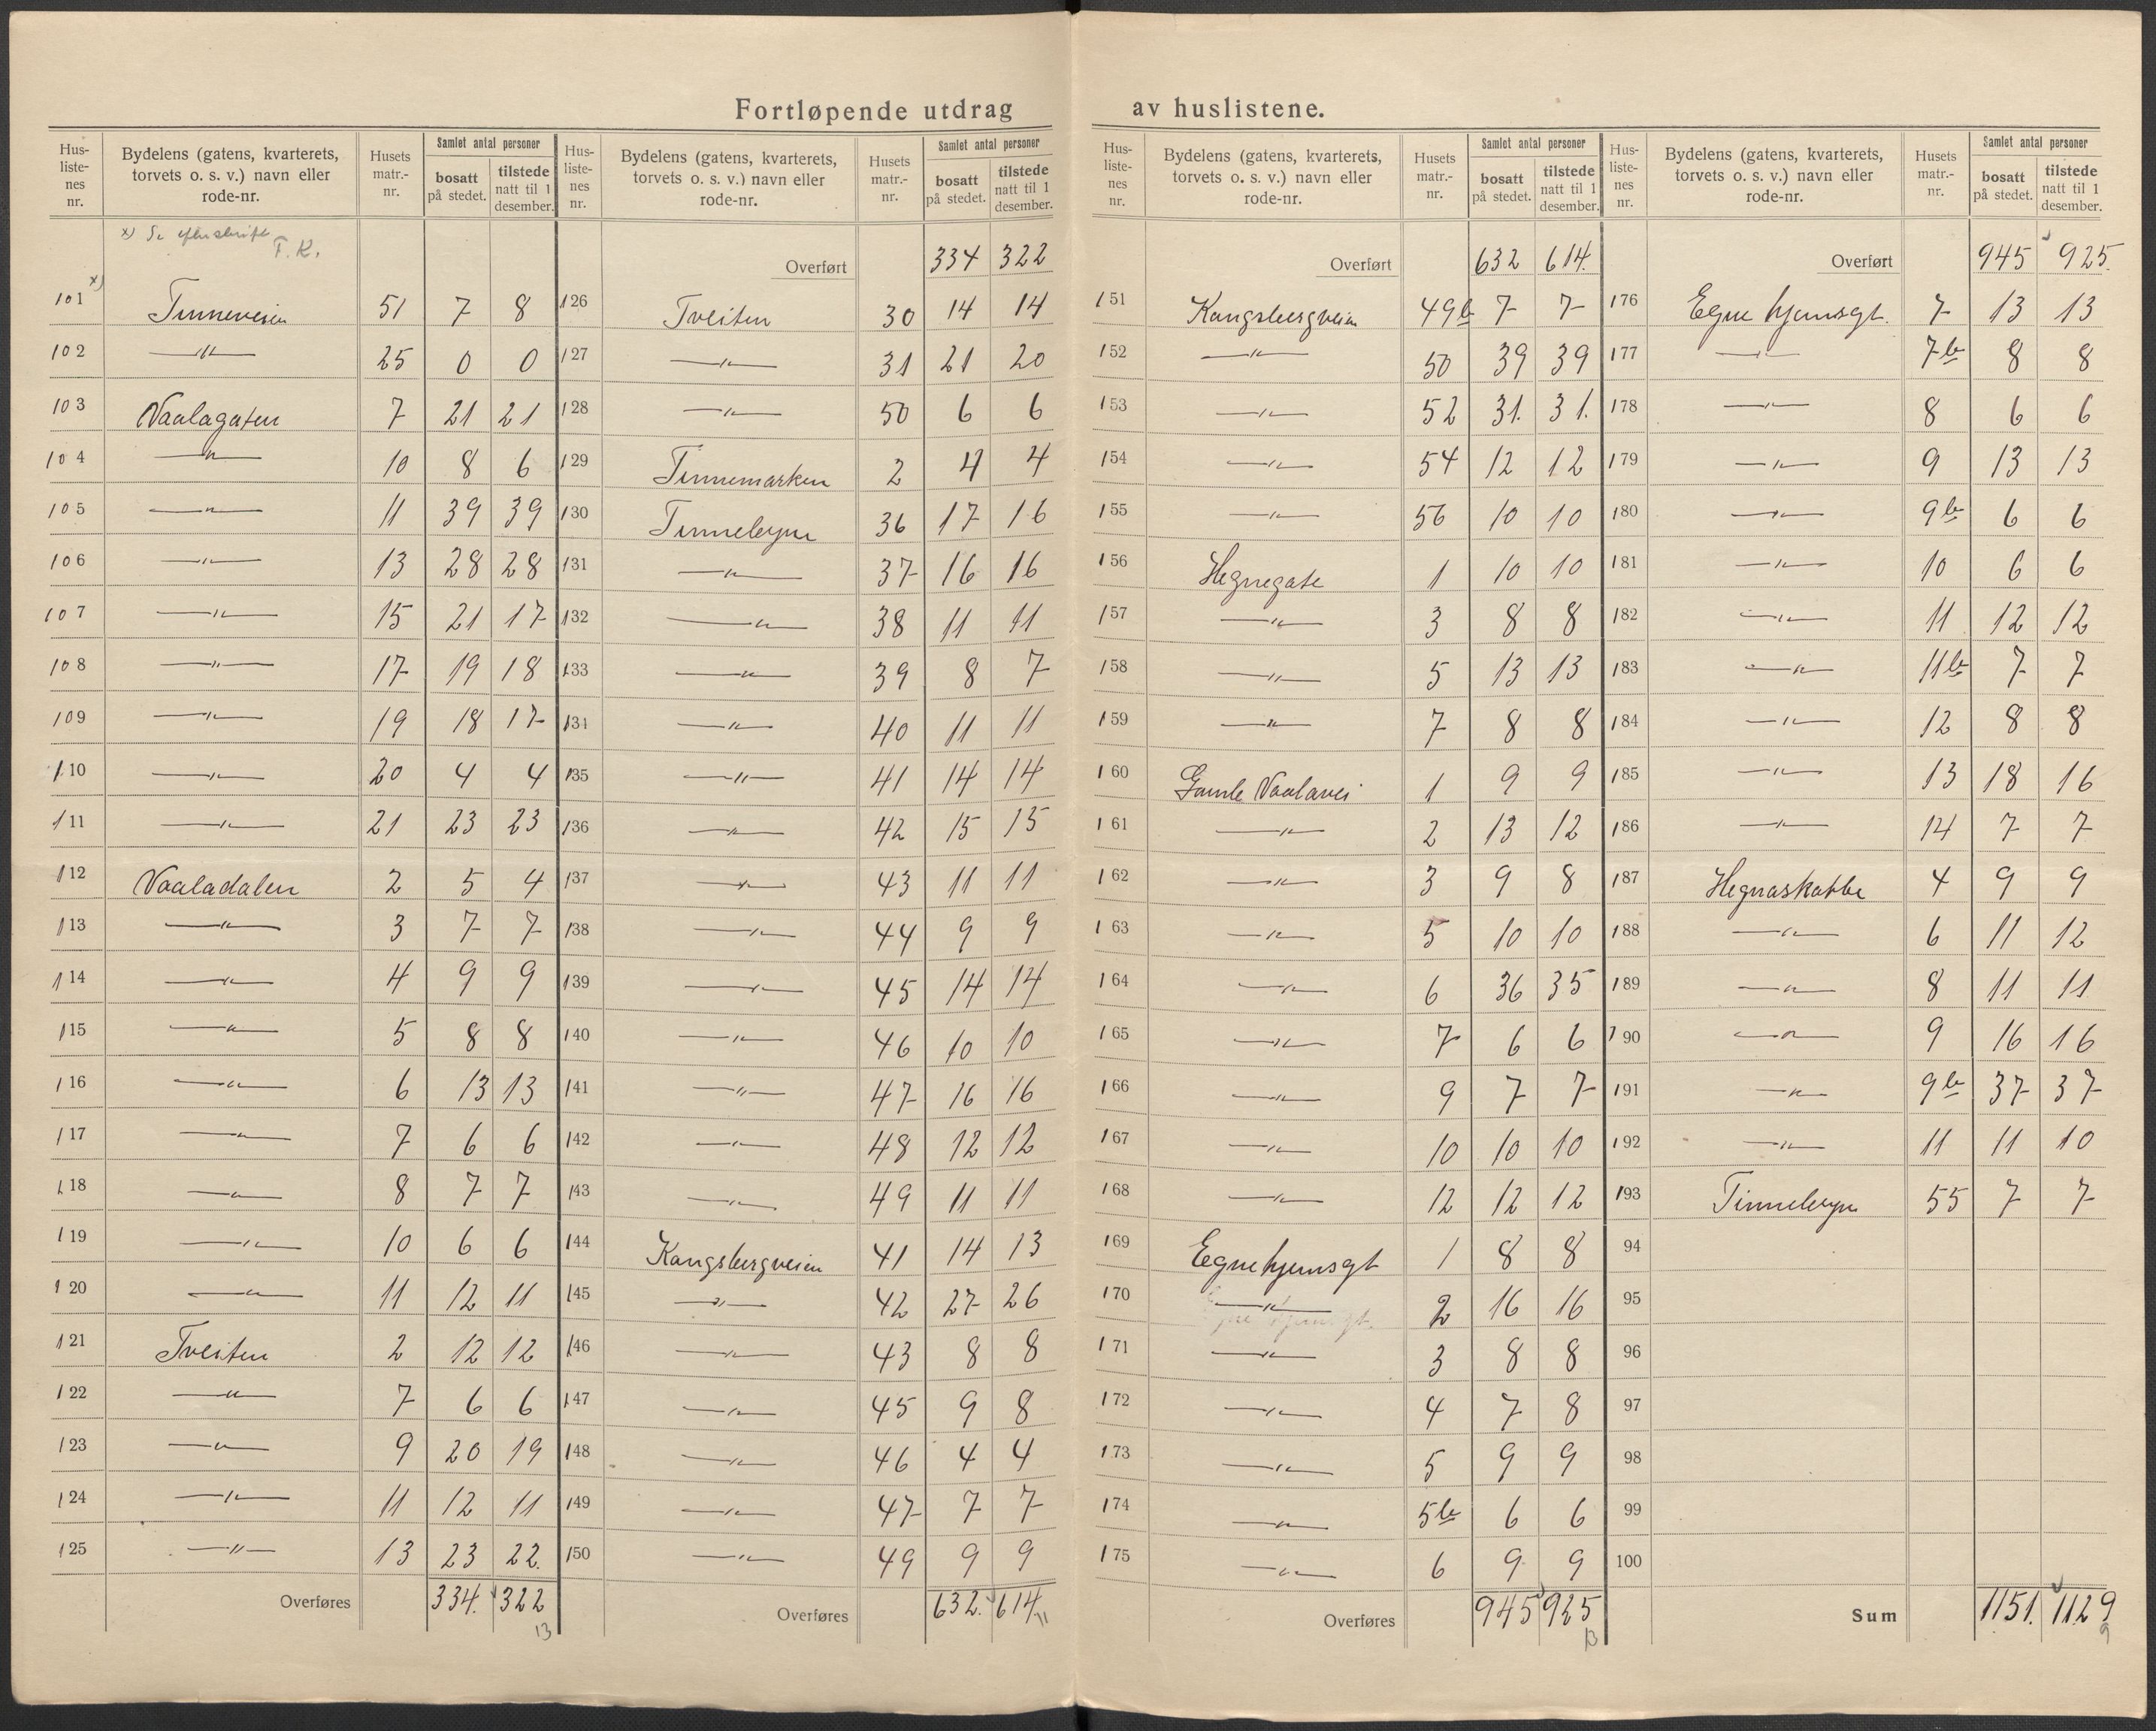 Fortløpende utdrag av huslistene.
Hus-liste-nes nr. | Bydelens (gatens, kvarterets, torvets o. s. v.) navn eller rode-nr. | Husets matr.-nr. | Samlet antal personer bosatt på stedet. | tilstede natt til 1 desember.
x) Se T. K.
101 x) Tinneveien 51 7 8
102 —"— 25 0 0
103 Vaalagaten 7 21 21
104 —"— 10 8 6
105 —"— 11 39 39
106 —"— 13 28 28
107 —"— 15 21 17
108 —"— 17 19 18
109 —"— 19 18 17
110 —"— 20 4 4
111 —"— 21 23 23
112 Vaaladalen 2 5 4
113 —"— 3 7 7
114 —"— 4 9 9
115 —"— 5 8 8
116 —"— 6 13 13
117 —"— 7 6 6
118 —"— 8 7 7
119 —"— 10 6 6
120 —"— 11 12 11
121 Tveiten 2 12 12
122 —"— 7 6 6
123 —"— 9 20 19
124 —"— 11 12 11
125 —"— 13 23 22.
Overføres 334. 322
13
Hus-liste-nes nr. | Bydelens (gatens, kvarterets, torvets o. s. v.) navn eller rode-nr. | Husets matr.-nr. | Samlet antal personer bosatt på stedet. | tilstede natt til 1 desember.
Overført 334 322
126 Tveiten 30 14 14
127 —"— 31 21 20
128 —"— 50 6 6
129 Tinnemarken 2 4 4
130 Tinnebyen 36 17 16
131 —"— 37 16 16
132 —"— 38 11 11
133 —"— 39 8 7
134 —"— 40 11 11
135 —"— 41 14 14
136 —"— 42 15 15
137 —"— 43 11 11
138 —"— 44 9 9
139 —"— 45 14 14
140 —"— 46 10 10
141 —"— 47 16 16
142 —"— 48 12 12
143 —"— 49 11 11
144 Kongsbergveien 41 14 13
145 —"— 42 27 26
146 —"— 43 8 8
147 —"— 45 9 8
148 —"— 46 4 4
149 —"— 47 7 7
150 —"— 49 9 9
Overføres 632. 614.
11
Hus-liste-nes nr. | Bydelens (gatens, kvarterets, torvets o. s. v.) navn eller rode-nr. | Husets matr.-nr. | Samlet antal personer bosatt på stedet. | tilstede natt til 1 desember.
Overført 632 614.
151 Kongsbergveien 49b 7 7
152 —"— 50 39 39
153 —"— 52 31. 31.
154 —"— 54 12 12
155 —"— 56 10 10
156 Hegnegate 1 10 10
157 —"— 3 8 8
158 —"— 5 13 13
159 —"— 7 8 8
160 Gamle Vaalavei 1 9 9
161 —"— 2 13 12
162 —"— 3 9 8
163 —"— 5 10 10
164 —"— 6 36 35
165 —"— 7 6 6
166 —"— 9 7 7
167 —"— 10 10 10
168 —"— 12 12 12
169 Egnehjemsgt 1 8 8
170 —"— 2 16 16
171 —"— 3 8 8
172 —"— 4 7 8
173 —"— 5 9 9
174 —"— 5b 6 6
175 —"— 6 9 9
Overføres 945 925
13
Hus-liste-nes nr. | Bydelens (gatens, kvarterets, torvets o. s. v.) navn eller rode-nr. | Husets matr.-nr. | Samlet antal personer bosatt på stedet. | tilstede natt til 1 desember.
Overført 945 925.
176 Egne hjemsgt. 7 13 13
177 —"— 7b 8 8
178 —"— 8 6 6
179 —"— 9 13 13
180 —"— 9b 6 6
181 —"— 10 6 6
182 —"— 11 12 12
183 —"— 11b 7 7
184 —"— 12 8 8
185 —"— 13 18 16
186 —"— 14 7 7
187 Hegnaskobbe 4 9 9
188 —"— 6 11 12
189 —"— 8 11 11
190 —"— 9 16 16
191 —"— 9b 37 37
192 —"— 11 11 10
193 Tinnebyen 55 7 7
94
95
96
97
98
99
100
Sum 1151. 1129
9